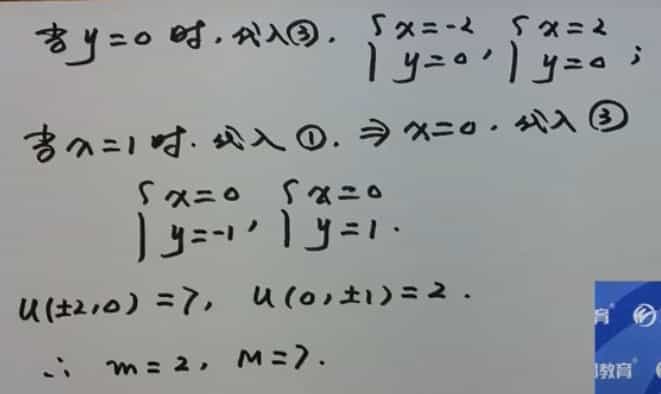 当y=0时.代入③. {x=-2 y=0, {x=2 y=0;
当λ=1时.代入①.⇒x=0.代入③
{x=0 y=-1, {x=0 y=1.
u(±2,0)=7, u(0,±1)=2.
∴ m=2, M=7.
育
教育